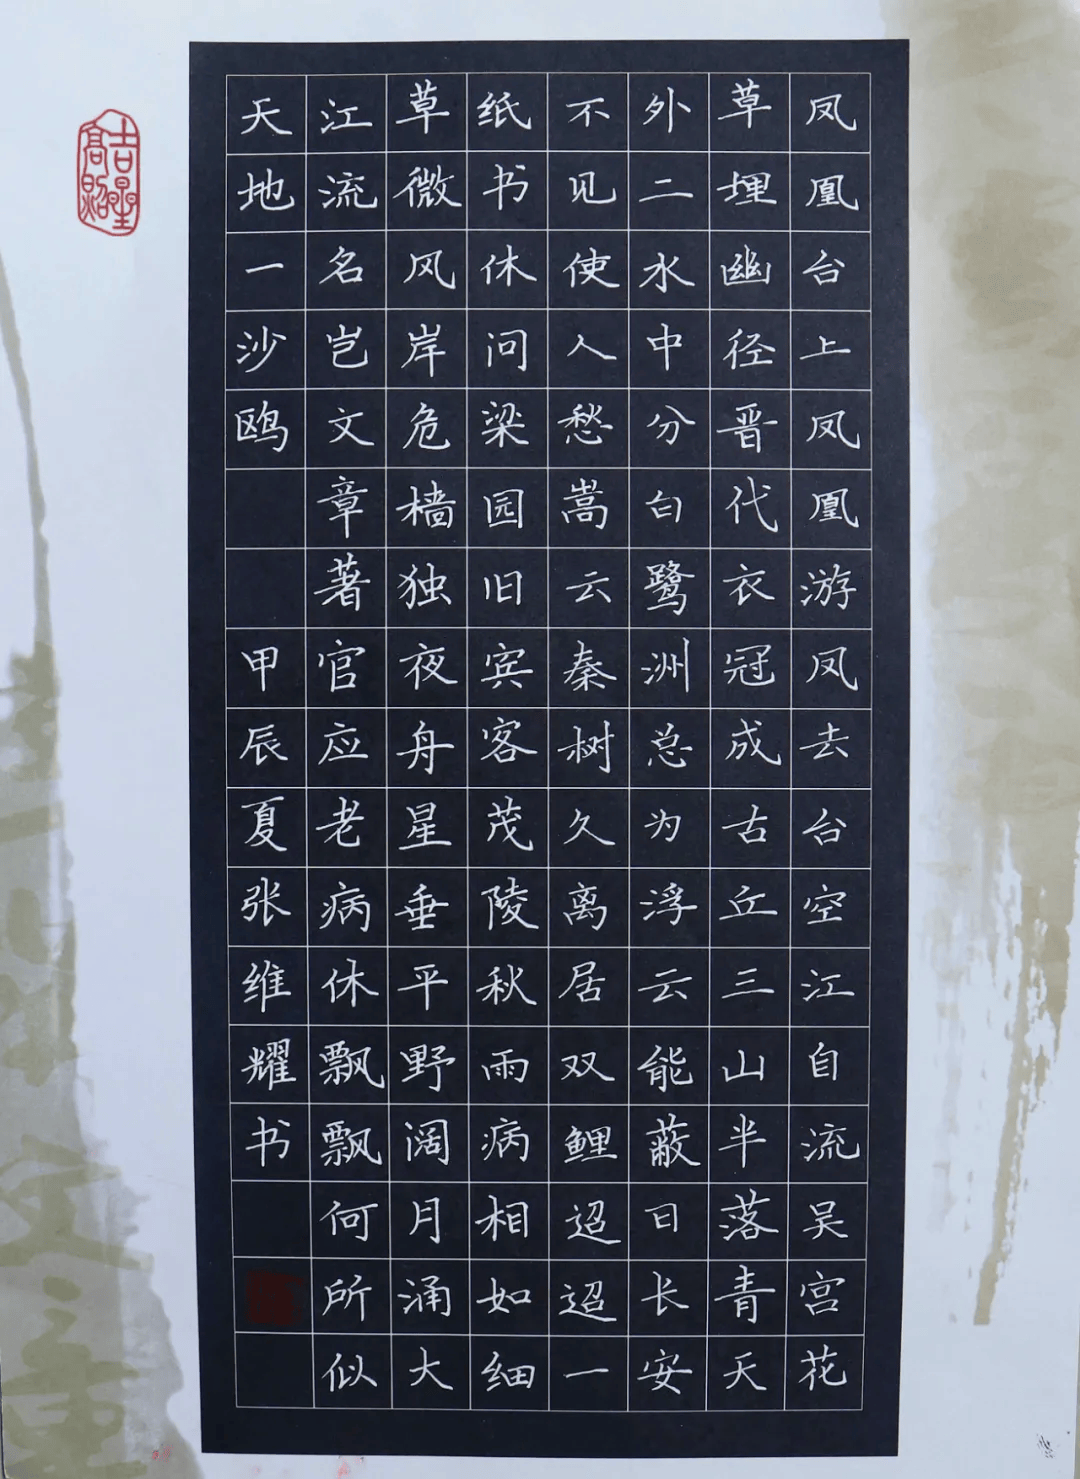 凤凰台上凤凰游凤去台空江自流吴宫花
草埋幽径晋代衣冠成古丘三山半落青天
外二水中分白鹭洲总为浮云能蔽日长安
不见使人愁嵩云秦树久离居双鲤迢迢一
纸书休问梁园旧宾客茂陵秋雨病相如细
草微风岸危樯独夜舟星垂平野阔月涌大
江流名岂文章著官应老病休飘飘何所似
天地一沙鸥 甲辰夏张维耀书
吉星高照